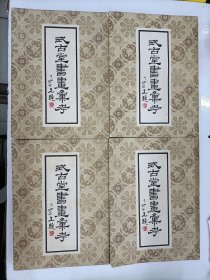 式古堂書畫彙考
式古堂書畫彙考
式古堂書畫彙考
式古堂書畫彙考